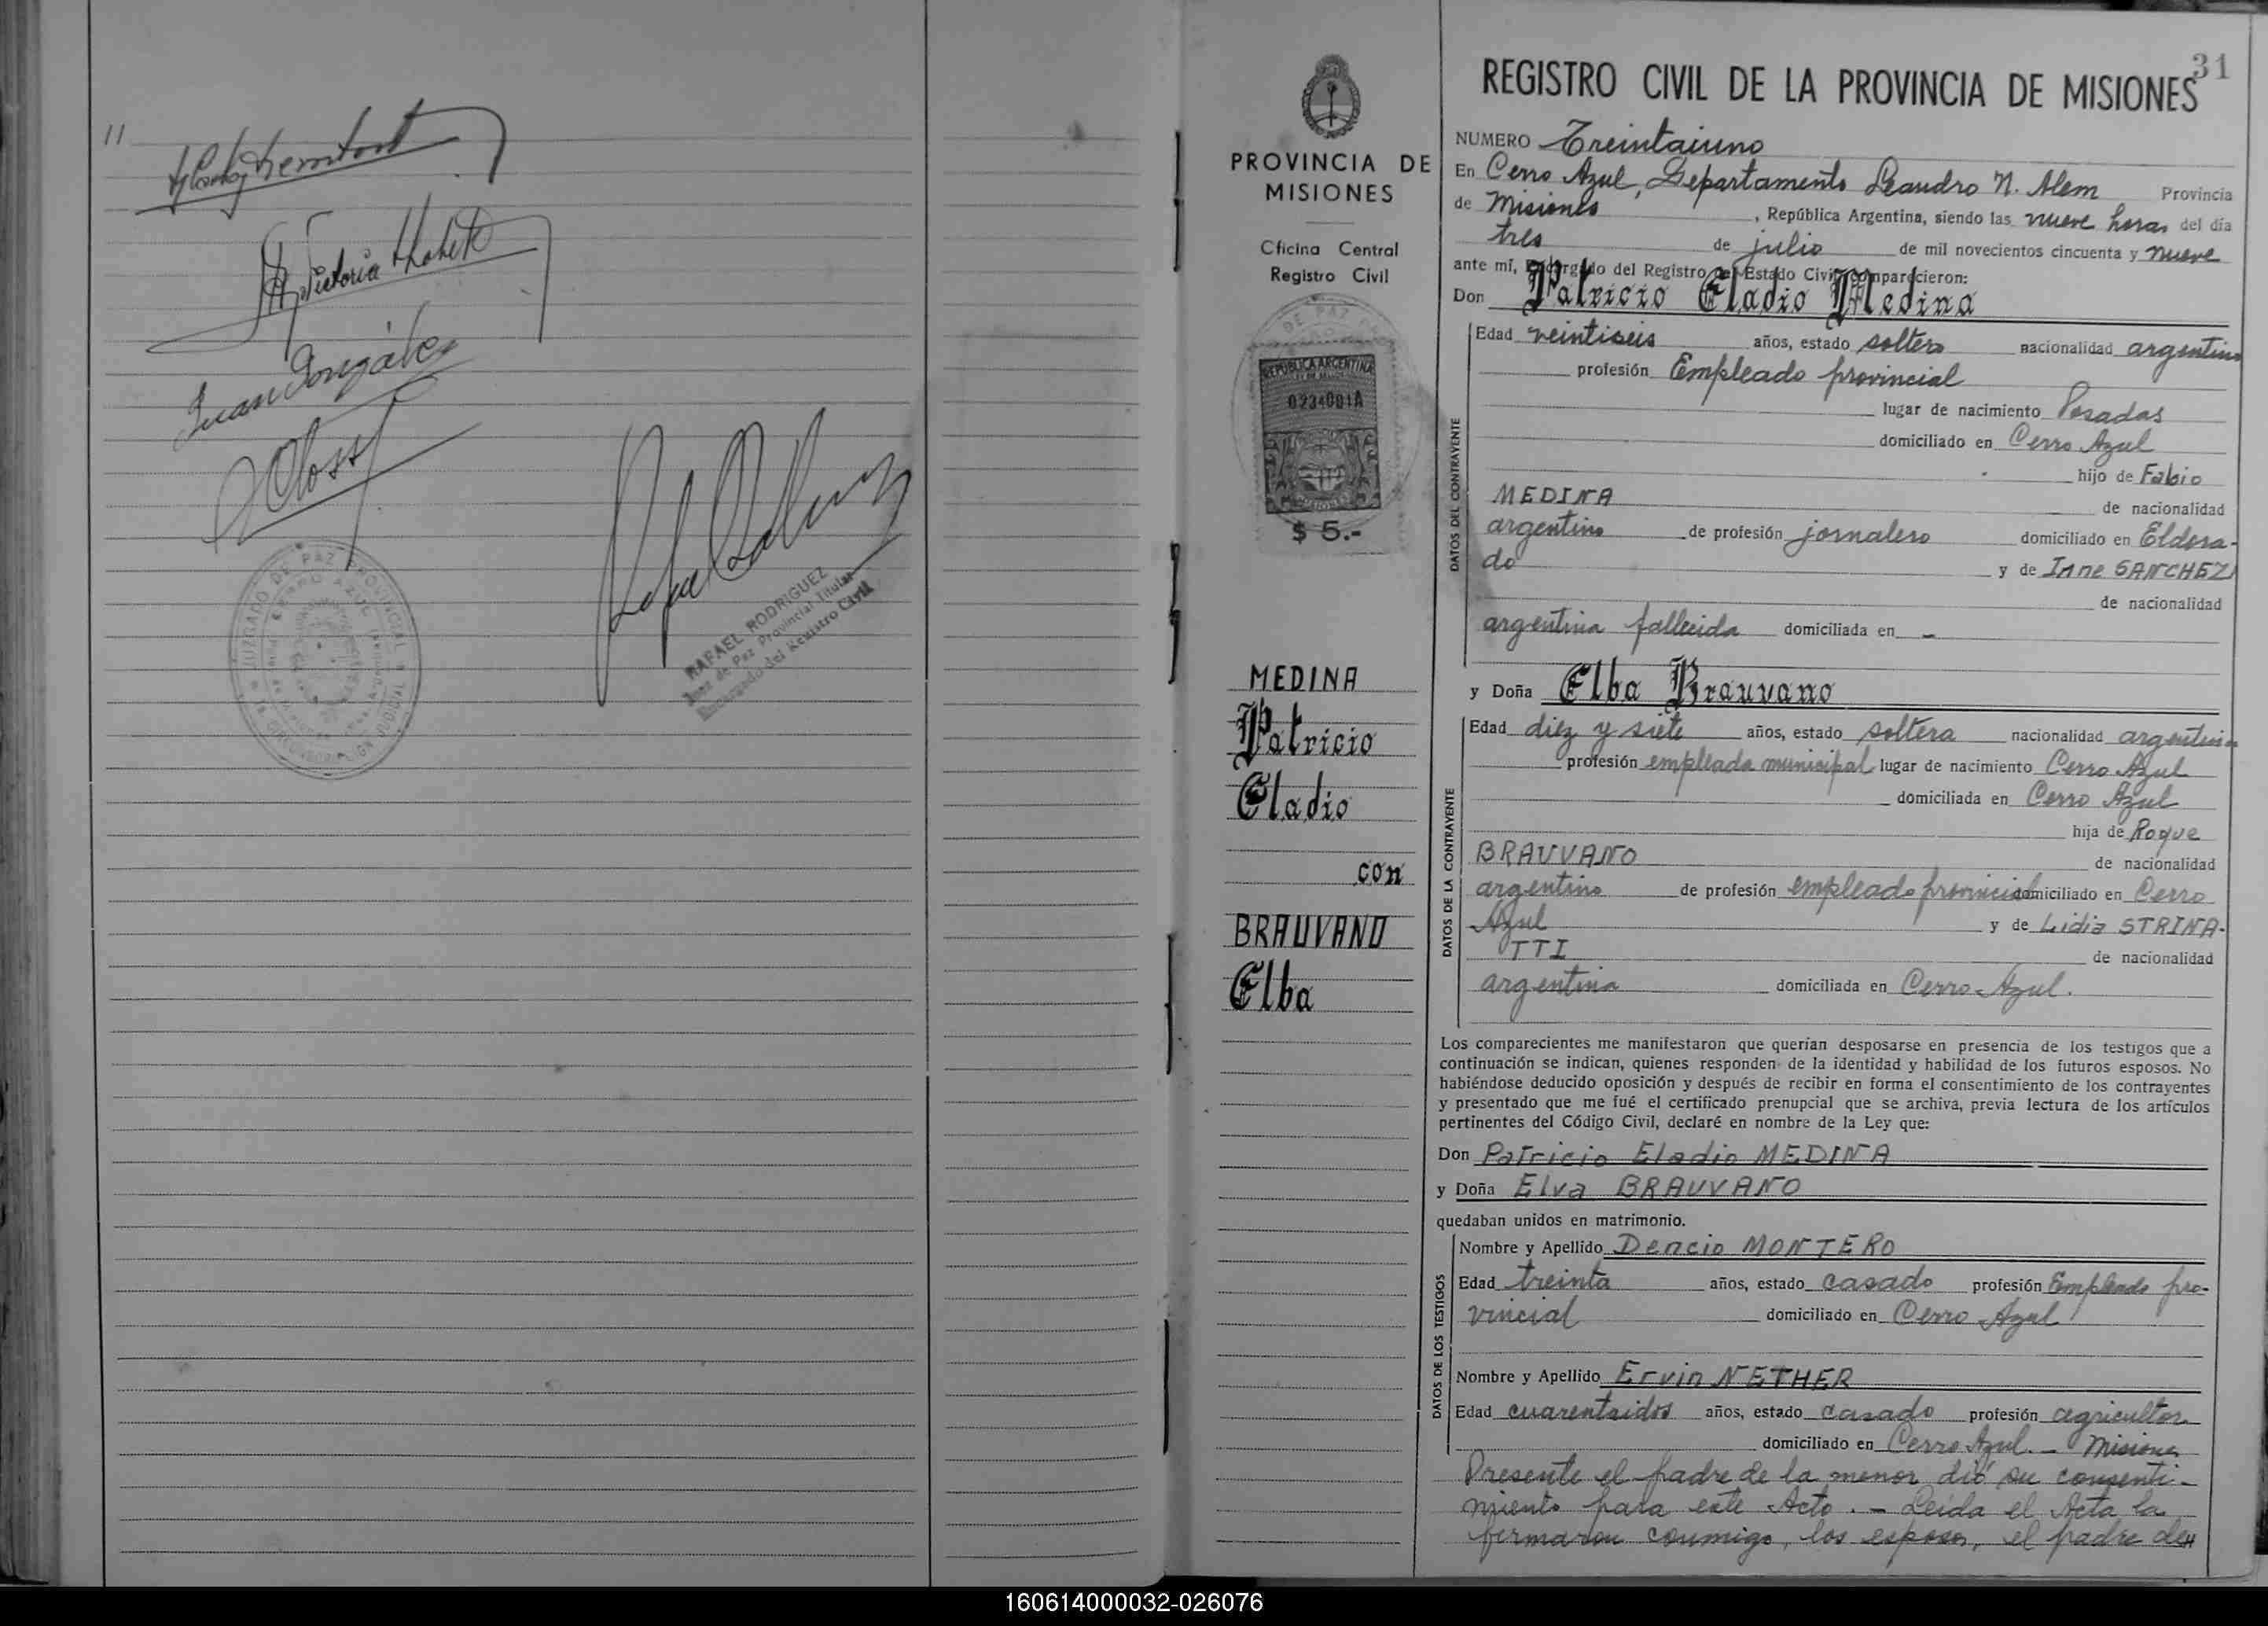 11
Juan González
RAFAEL RODRIGUEZ
Juez de Paz Provincial Titular
Encargado del Registro Civil
JUZGADO DE PAZ PROVINCIAL
CERRO AZUL
31
PROVINCIA DE
MISIONES
Oficina Central
Registro Civil
REPUBLICA ARGENTINA
0234001A
$ 5.-
MEDINA
Patricio
Eladio
con
BRAUVANO
Elba
REGISTRO CIVIL DE LA PROVINCIA DE MISIONES
NUMERO Treintaiuno
En Cerro Azul, Departamento Leandro N. Alem Provincia
de Misiones, República Argentina, siendo las nueve horas del día
tres de julio de mil novecientos cincuenta y nueve
ante mí, Encargado del Registro del Estado Civil, comparecieron:
Don Patricio Eladio Medina
DATOS DEL CONTRAYENTE
Edad veintiseis años, estado soltero nacionalidad argentino
profesión Empleado provincial
lugar de nacimiento Posadas
domiciliado en Cerro Azul
hijo de Fabio
MEDINA de nacionalidad
argentino de profesión jornalero domiciliado en Eldora-
do y de Inne SANCHEZ
de nacionalidad
argentina fallecida domiciliada en -
y Doña Elba Brauvano
DATOS DE LA CONTRAYENTE
Edad diez y siete años, estado soltera nacionalidad argentina
profesión empleada municipal lugar de nacimiento Cerro Azul
domiciliada en Cerro Azul
hija de Roque
BRAUVANO de nacionalidad
argentino de profesión empleado provincial domiciliado en Cerro
Azul y de Lidia STRINA-
TTI de nacionalidad
argentina domiciliada en Cerro Azul.
Los comparecientes me manifestaron que querían desposarse en presencia de los testigos que a
continuación se indican, quienes responden de la identidad y habilidad de los futuros esposos. No
habiéndose deducido oposición y después de recibir en forma el consentimiento de los contrayentes
y presentado que me fué el certificado prenupcial que se archiva, previa lectura de los artículos
pertinentes del Código Civil, declaré en nombre de la Ley que:
Don Patricio Eladio MEDINA
y Doña Elva BRAUVANO
quedaban unidos en matrimonio.
DATOS DE LOS TESTIGOS
Nombre y Apellido Dencio MONTERO
Edad treinta años, estado casado profesión Empleado pro-
vincial domiciliado en Cerro Azul
Nombre y Apellido Ervin NETHER
Edad cuarentaidos años, estado casado profesión agricultor
domiciliado en Cerro Azul. - Misiones
Presente el padre de la menor dió su consenti-
miento para este Acto. - Leida el Acta la
firmaron conmigo, los esposos, el padre de
160614000032-026076